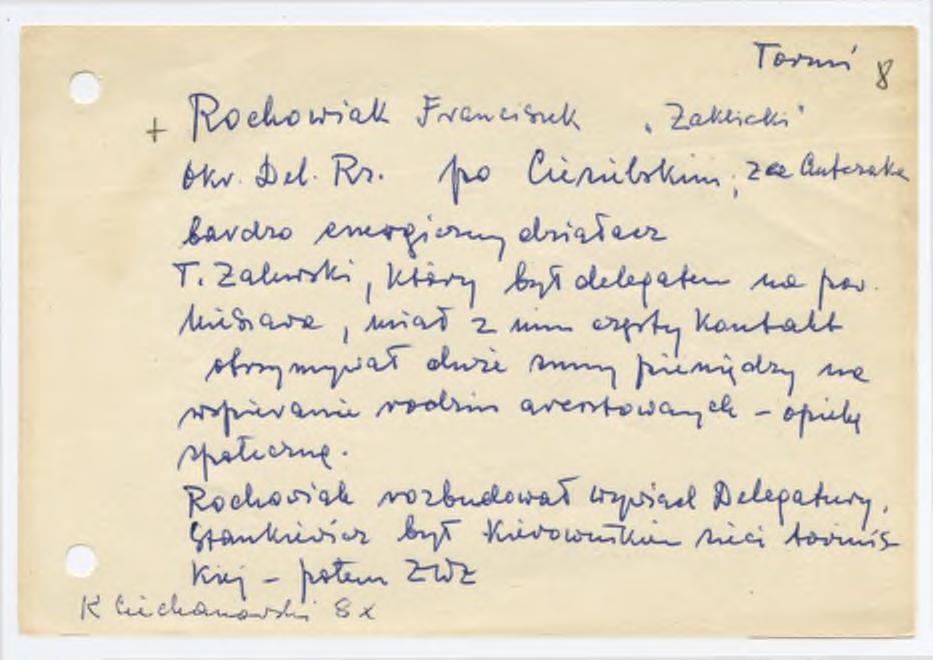 Toruń 8
+ Rochowiak Franciszek "Zaklicki"
Okr. Del. Rz. po Ciesielskim, za Antczaka
bardzo energiczny działacz
T. Zalewski, który był delegatem na pow.
Nieszawa, miał z nim częsty kontakt
otrzymywał duże sumy pieniędzy na
wspieranie rodzin aresztowanych - opiekę
społeczną.
Rochowiak rozbudował wywiad Delegatury.
Stankiewicz był kierownikiem sieci toruńs
kiej - potem ZWZ
K Ciechanowski 8x